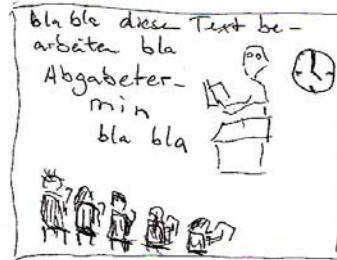 bla bla diesen Text be-
arbeiten bla
Abgabeter-
min
bla bla